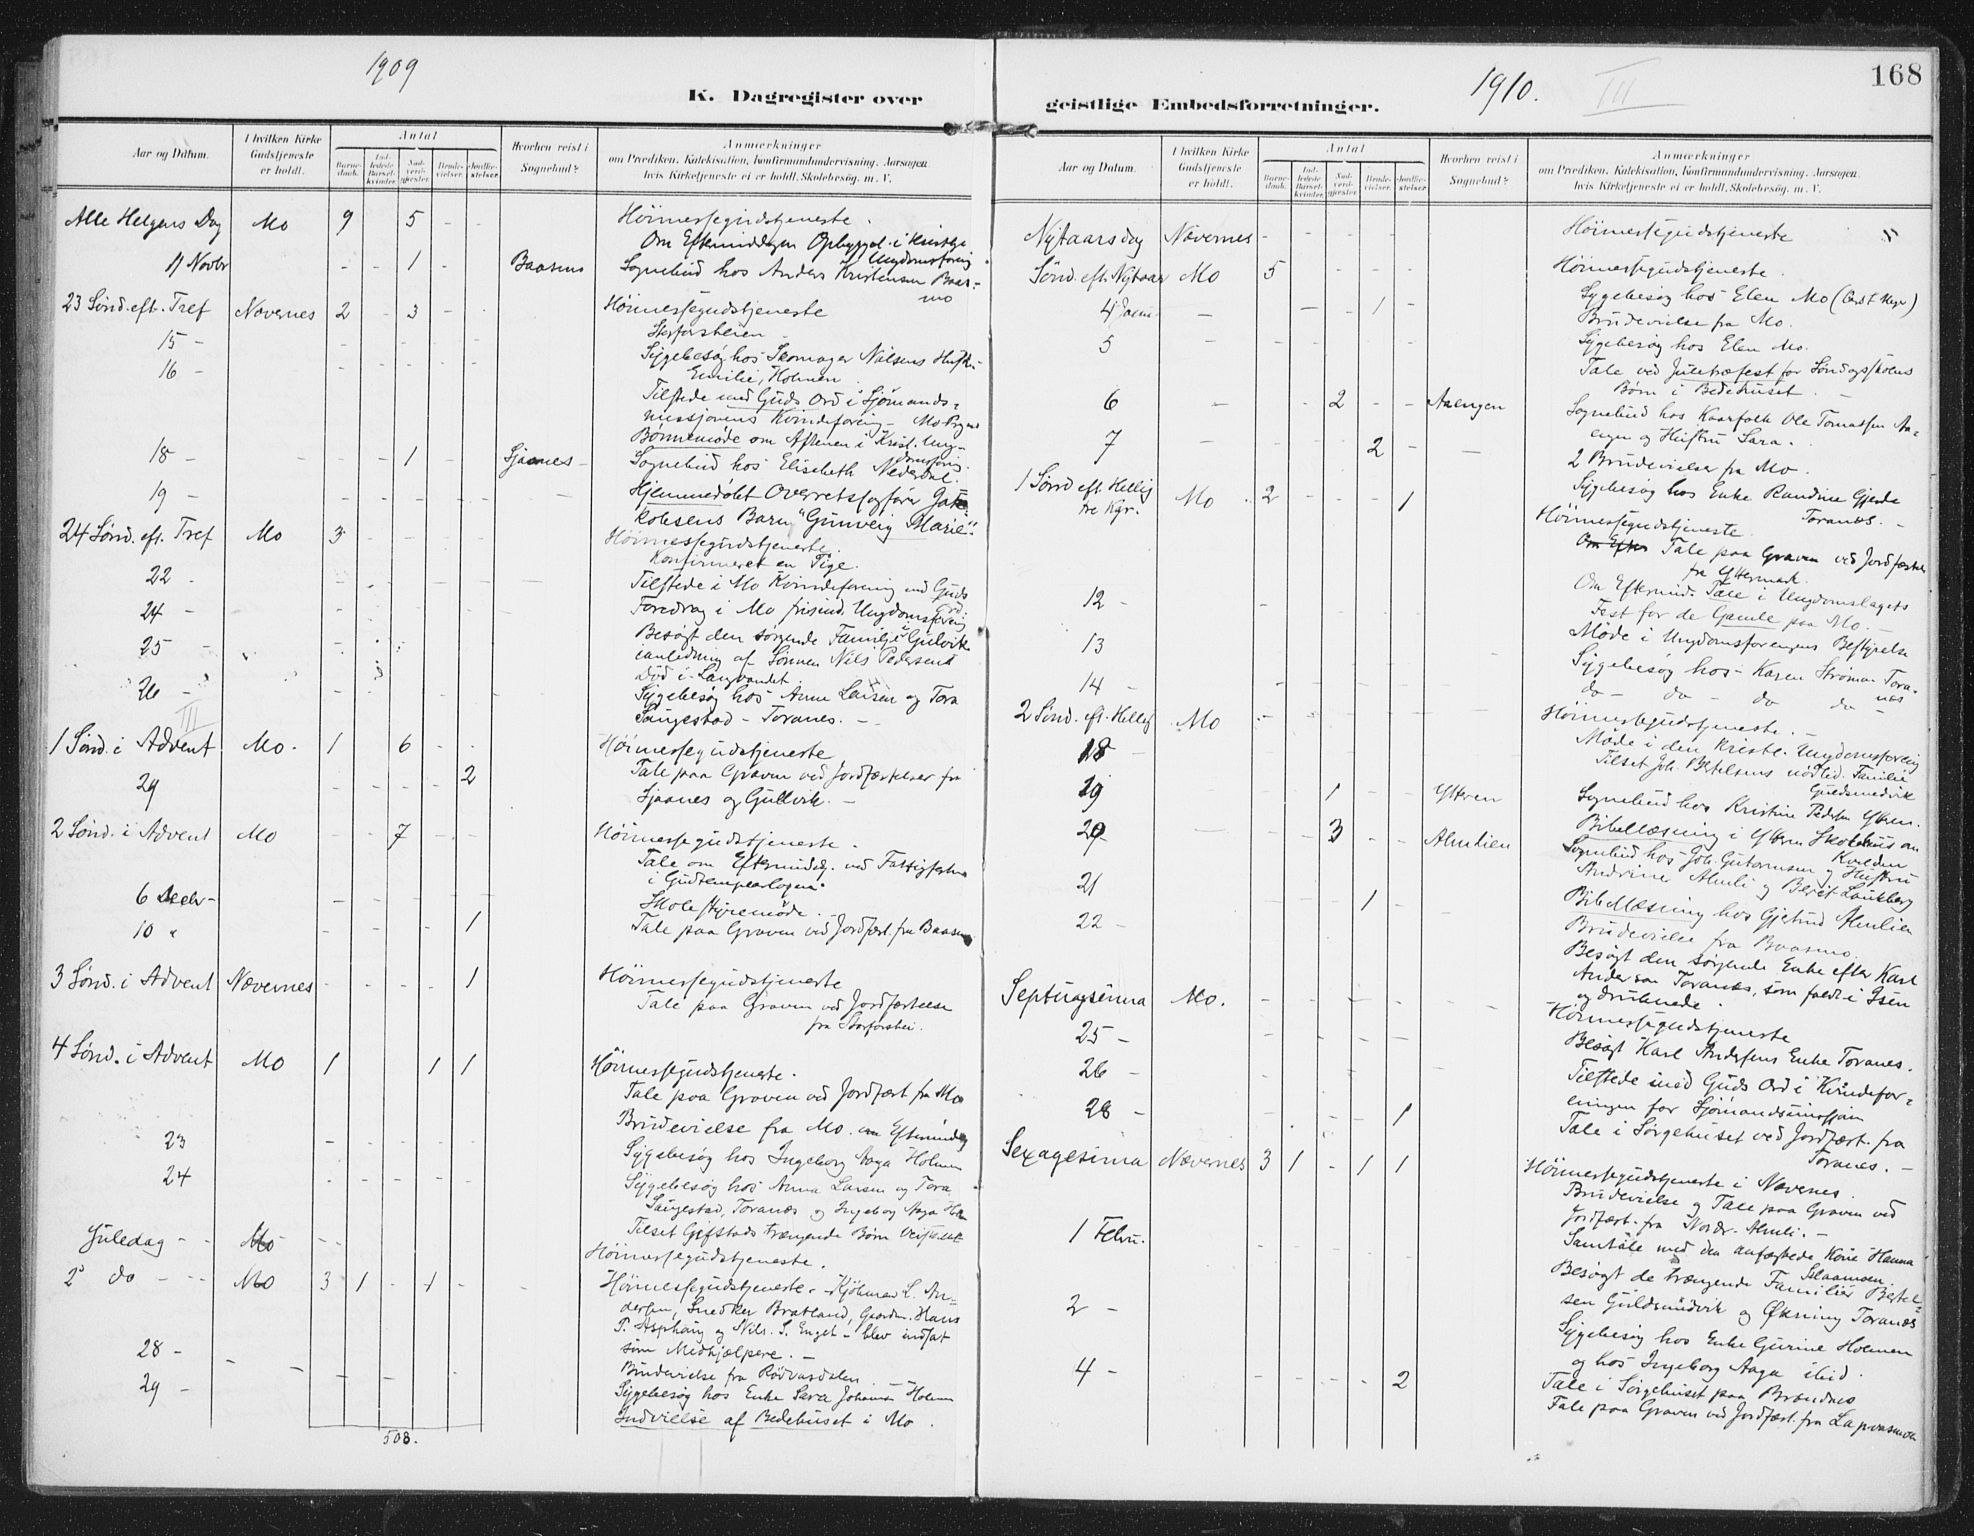 1909
K. Dagregister over
Aar og Datum.
I hvilken Kirke Gudstjeneste er holdt.
Antal
Barne-daab.
Ind-ledede Barsel-kvinder.
Nad-verd-gjester.
Brude-vielser.
Jordfæ-stelser.
Hvorhen reist i Sognebud?
Anmærkninger
om Prædiken, Katekisation, Konfirmandundervisning, Aarsagen,
hvis Kirketjeneste ei er holdt, Skolebesøg, m. V.
Alle Helgens Dag Mo 9 5 - - Höimessegudstjeneste.
Om Eftermiddagen Opbyggel. i Kristl.
Ungdomsforenig
11 Novbr - - 1 - Baasmo Sognebud hos Anders Kristensen Baas=
mo
23 Sönd. eft. Tref Nævernes 2 - 3 - - Höimessegudstjeneste
15 - Storforsheien
16 - Sygebesøg hos Skomager Nilsens Hustru
Emilie, Holmen.
Tilstede med Guds Ord i Sjömands=
missjonens Kvindeforenig - Mo
Bönnemöde om Aftenen i Kristl. Ung-
domsforen.
18 - - - 1 - Sjaanes - Sognebud hos Elisabeth Nederdal.
19 - Hjemmedöbt Overretssagförer Jak=
kobsens Barn "Gunveig Marie".
24 Sönd. eft. Tref Mo 3 - - Höimessegudstjeneste.
Konfirmeret en Pige.
22 - Tilstede i Mo Kvindeforening med Guds
Ord
24 - Foredrag i Mo frisind. Ungdomsforenig
25 - Besögt den sörgende Familje i Gulvik
i anledning af Sönnen Nils Pedersens
Död i Langvandet.
26 - Sygebesøg hos Anna Larsen og Tora
Langestad - Toranes. -
III
1 Sönd. i Advent Mo. 1 - 6 - - Höimessegudstjeneste
29 2 Tale paa Graven ved Jordfæstelser fra
Sjaanes og Gullvik. -
2 Sönd. i Advent Mo 7 - - Höimessegudstjeneste.
Tale om Eftermiddg. ved Fattigfesten
i Godtemplarlogen.
6 Decbr - Skolestyremöde.
10 " 1 Tale paa Graven ved Jordfæst. fra Baasmo
3 Sönd. i Advent Nævernes - - - - 1 Höimessegudstjeneste
Tale paa Graven ved Jordfæstelse
fra Storforshei.
4 Sönd. i Advent Mo 1 1 1 Höimessegudstjeneste.
Tale paa Graven ved Jordfæst. fra Mo
Brudevielse fra Mo. om Eftermiddag
23 Sygebesøg hos Ingeborg Aaga Holmen
24 Sygebesøg hos Anna Larsen og Tora
Langestad, Toranæs og Ingeborg Aaga Holm
Tilset Gifstads trængende Börn
Juledag - - Mo - - Höimessegudstjeneste.
2 do - - - Mo 3 1 - 1 - Höimessegudstjeneste - Kjöbmand L. An=
dersen, Snedker Bratland, Gaardm. Hans
P. Asphaug og Nils S. Enget - blev indsat
som Medhjælpere. -
28 - Brudevielse fra Rödvasdalen. -
29 - Sygebesøg hos Enke Sara Johanna Holmen
Indvielse af Bedehuset i Mo.
508.
168
1910. III
geistlige Embedsforretninger.
Aar og Datum.
I hvilken Kirke Gudstjeneste er holdt.
Antal
Barne-daab.
Ind-ledede Barsel-kvinder.
Nad-verd-gjester.
Brude-vielser.
Jordfæ-stelser.
Hvorhen reist i Sognebud?
Anmærkninger
om Prædiken, Katekisation, Konfirmandundervisning, Aarsagen,
hvis Kirketjeneste ei er holdt, Skolebesøg, m. V.
Nytaarsdag Nævernes - - - - Höimessegudstjeneste
Sönd. eft. Nytaar Mo 5 - - - Höimessegudstjeneste.
4 Janu. - - - 1 - Sygebesøg hos Elen Mo
Brudevielse fra Mo.
5 - Sygebesøg hos Elen Mo.
Tale ved Juletræfest for Söndagsskolens
Börn i Bedehuset. -
6 - - 2 - - Aaengen Sognebud hos Kaarfolk Ole Tomassen Aa=
engen og Hustru Sara. -
7 - - 2 - - 2 Brudevielser fra Mo.
Sygebesøg hos Enke Randine Gjerde
Toranæs. -
1 Sönd eft. Hellig
tre Kgr. Mo 2 - - - 1 Höimessegudstjeneste.
Om Efter Tale paa Graven ved Jordfæstels
fra Yttermark.
12 - Om Eftermid. Tale i Ungdomslagets
Fest for de Gamle paa Mo. -
13 Möde i Ungdomsforengens Bestyrelse
14 - Sygebesøg hos Karen Ström - Tora=
nes
do - do - do do -
2 Sönd. eft. Hellig Mo - Höimessegudstjeneste. -
18 - Möde i den Kristl. Ungdomsforenig
Tilset Joh. Bertelsens nödlid. Familie
Guldsmedvik
19 1 - - Ytteren Sognebud hos Kristine Pedersen Ytteren.
Bibellæsning i Ytteren Skolehus om
Kvelden
20 - 3 - - Almlien Sognebud hos Joh. Gutormsen og Hustru
Andrine Almli og Berit Lankberg
21 Bibellæsning hos Gjetrud Almlien
22 - 1 - Brudevielse fra Baasmo.
Besögt den sörgende Enke efter Karl
Andersen Toranes, som faldt i Isen
og druknede.
Septuagesima Mo. - - - - Höimessegudstjeneste
25 - Besögt Karl Andersens Enke Toranes.
26 - Tilstede med Guds Ord i Kvindefor=
eningen for Sjömandsmissjon
28 - 1 Tale i Sörgehuset ved Jordfæst. fra
Toranes. -
Sexagesima Nævernes 3 1 - 1 1 Höimessegudstjeneste i Nævernes.
Brudevielse og Tale paa Graven ved
Jordfæst. fra Nordr. Almli. -
1 Febru. Samtale med den anfægtede Kone Hanna
Slaamoen.
Besögt de trængende Familier Bertel=
2 - sen Guldsmedvik og Öksning Toranæs
Sygebesøg hos Enke Gurine Holmen
og hos Ingeborg Aaga ibid.
4 - 2 Tale i Sörgehuset paa Brændmo
Tale paa Graven ved Jordfæst. fra Lapvasmoen